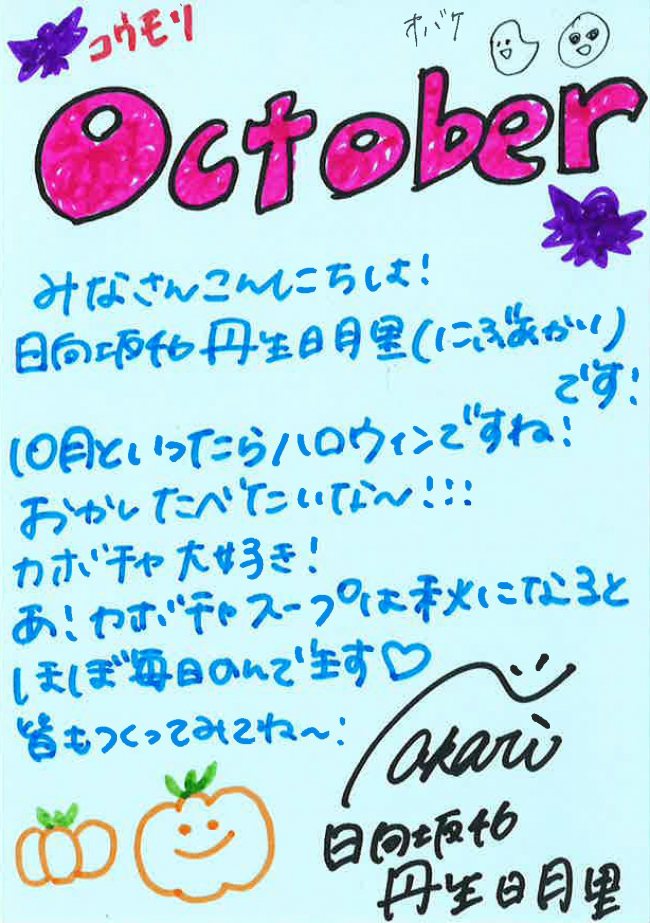 コウモリ
オバケ
October
みなさんこんにちは!
日向坂46 丹生明里(にぶあかり)
です!
10月といったらハロウィンですね!
おかしたべたいな〜!!!
カボチャ大好き!
あ!カボチャスープは秋になると
ほぼ毎日のんでます♡
皆もつくってみてね〜!
akari
日向坂46
丹生明里